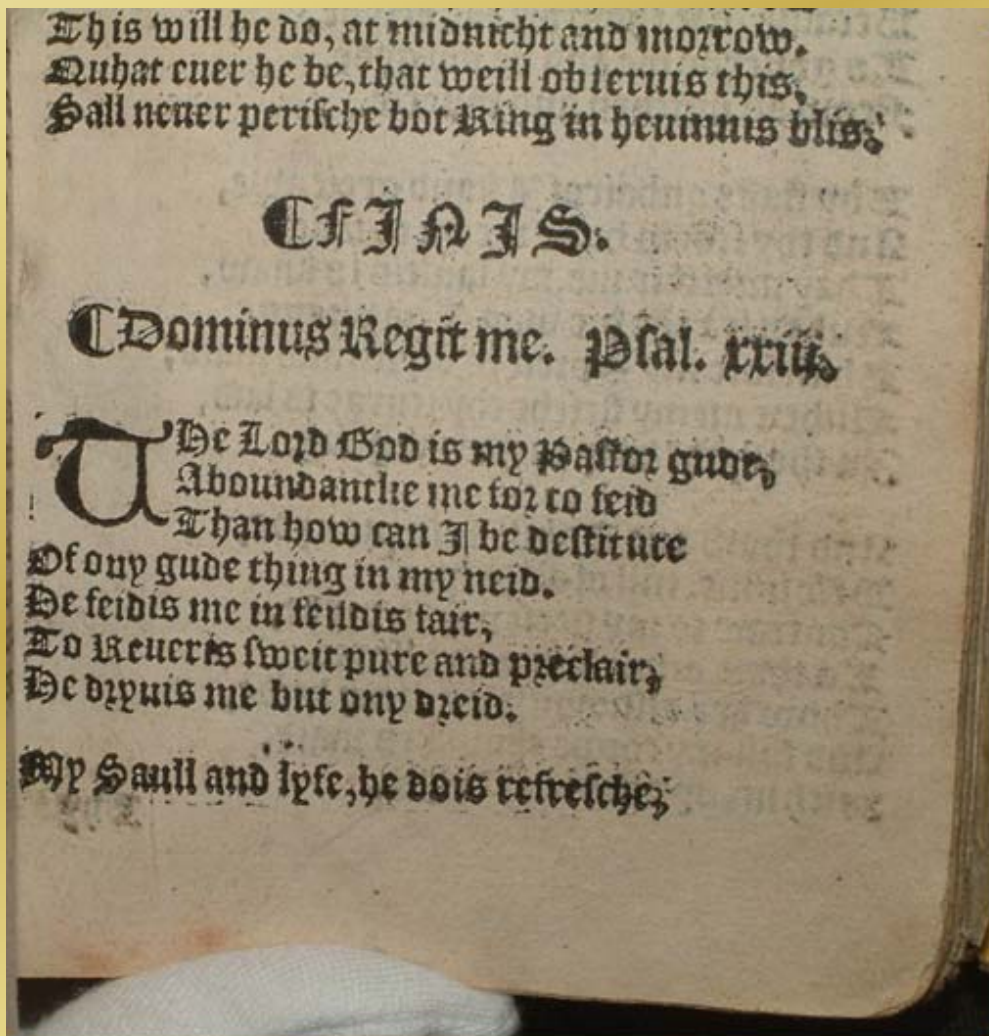 This will he do, at midnicht and morrow.
Quhat euer he be, that weill obseruis this,
Sall neuer perische bot Ring in heuinnis blis.
¶FINIS.
¶Dominus Regit me. Psal. xxiij.
THe Lord God is my Pastor gude,
Aboundantlie me for to feid
Than how can I be destitute
Of ony gude thing in my neid.
He feidis me in feildis fair,
To Reueris sweit pure and preclair,
He dryuis me but ony dreid.
My Saull and lyfe, he dois refresche,